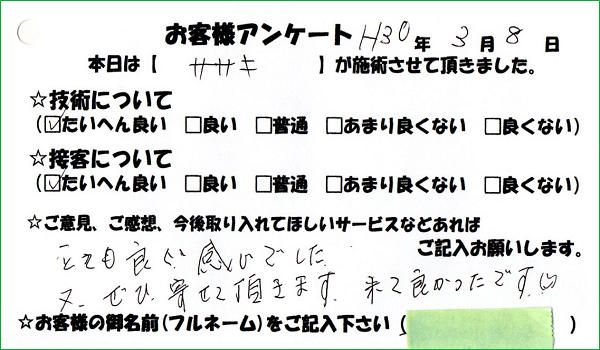 お客様アンケート H30年 3月 8日
本日は【 ササキ 】が施術させて頂きました。
☆技術について
(☑たいへん良い □良い □普通 □あまり良くない □良くない)
☆接客について
(☑たいへん良い □良い □普通 □あまり良くない □良くない)
☆ご意見、ご感想、今後取り入れてほしいサービスなどあれば
ご記入お願いします。
とても良い感じでした。
又、ぜひ寄せて頂きます。来て良かったです。
☆お客様の御名前(フルネーム)をご記入下さい( )